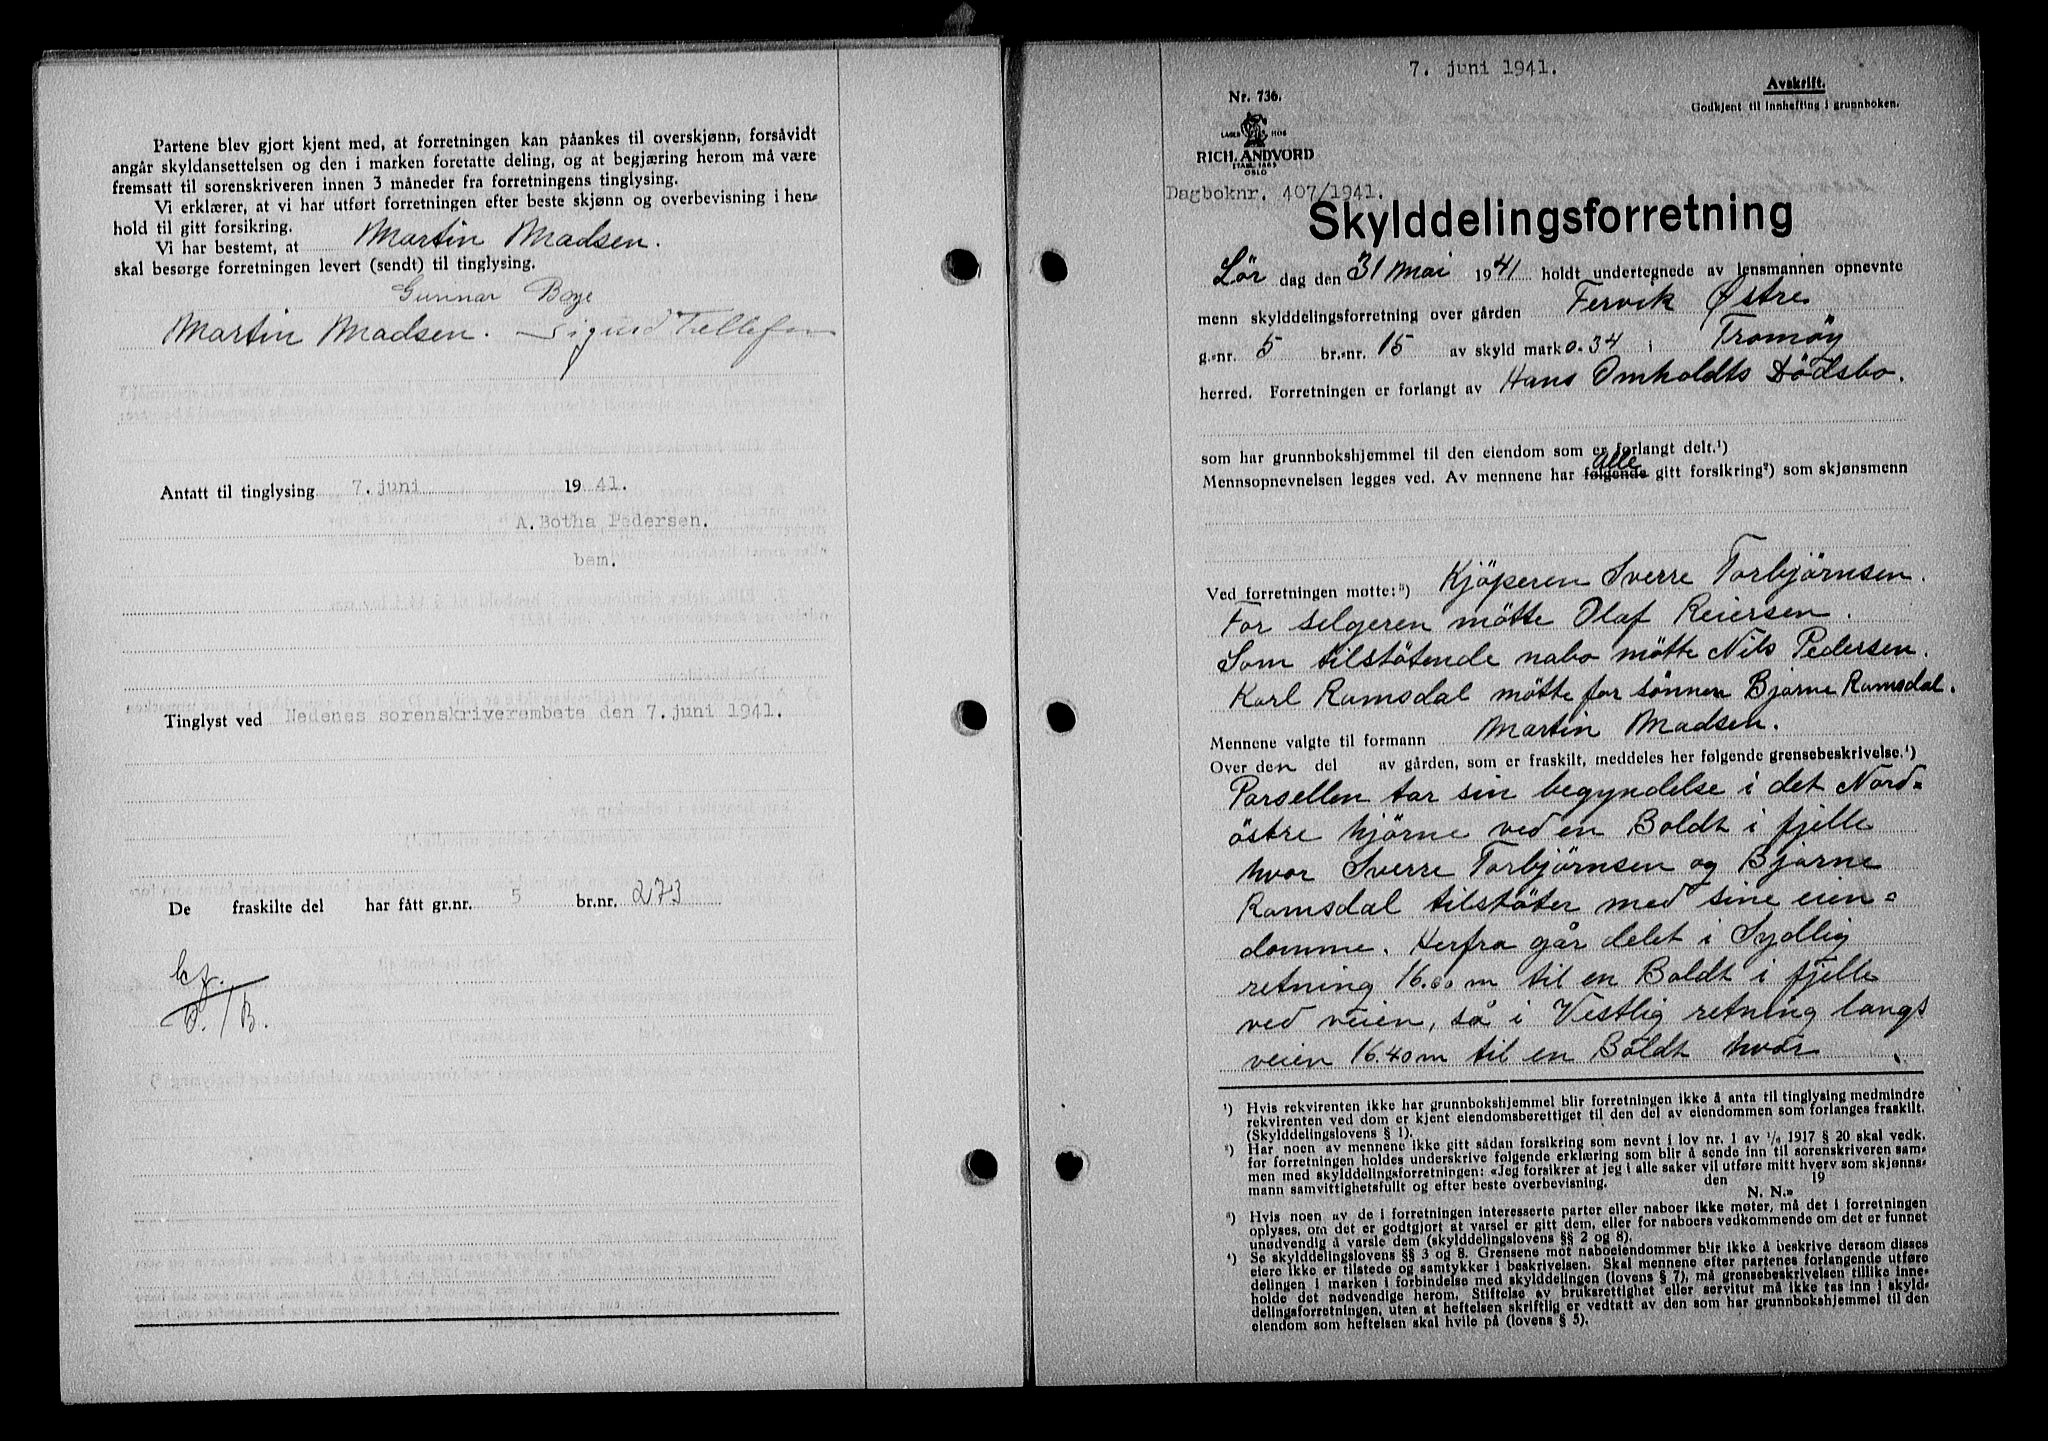 Partene blev gjort kjent med, at forretningen kan påankes til overskjønn, forsåvidt
angår skyldansettelsen og den i marken foretatte deling, og at begjæring herom må være
fremsatt til sorenskriveren innen 3 måneder fra forretningens tinglysing.
Vi erklærer, at vi har utført forretningen efter beste skjønn og overbevisning i hen-
hold til gitt forsikring.
Vi har bestemt, at Martin Madsen.
skal besørge forretningen levert (sendt) til tinglysing.
Gunnar Boye
Martin Madsen. Sigurd Tellefsen
Antatt til tinglysing 7. juni 1941.
A. Botha Pedersen.
bem.
Tinglyst ved Nedenes sorenskriverembete den 7. juni 1941.
De fraskilte del har fått gr.nr. 5 br.nr. 273
7. juni 1941.
Nr. 736.
Avskrift.
Godkjent til innhefting i grunnboken.
LAGER HOS
RICH. ANDVORD
OSLO
Dagboknr. 407/1941.
Skylddelingsforretning
Lör dag den 31 Mai 1941 holdt undertegnede av lensmannen opnevnte
menn skylddelingsforretning over gården Fervik Østre
g.-nr. 5 br.-nr. 15 av skyld mark 0.34 i Tromöy
herred. Forretningen er forlangt av Hans Omholdts Dödsbo.
som har grunnbokshjemmel til den eiendom som er forlangt delt.¹)
alle
Mennsopnevnelsen legges ved. Av mennene har følgende gitt forsikring²) som skjønsmenn
Ved forretningen møtte:³) Kjöperen Sverre Torbjörnsen.
For selgeren mötte Olaf Reiersen.
Som tilstötende nabo mötte Nils Pedersen.
Karl Ramsdal mötte for sönnen Bjarne Ramsdal.
Mennene valgte til formann Martin Madsen.
Over den del av gården, som er fraskilt, meddeles her følgende grensebeskrivelse.⁴)
Parsellen tar sin begyndelse i det Nord-
östre hjörne ved en Boldt i fjelle
hvor Sverre Torbjörnsen og Bjarne
Ramsdal tilstöter med sine eien-
domme. Herfra går delet i Sydlig
retning 16.60 m til en Boldt i fjelle
ved veien, så i Vestlig retning langs
veien 16.40 m til en Boldt hvor
¹) Hvis rekvirenten ikke har grunnbokshjemmel blir forretningen ikke å anta til tinglysing medmindre
rekvirenten ved dom er kjent eiendomsberettiget til den del av eiendommen som forlanges fraskilt.
(Skylddelingslovens § 1).
²) Har noen av mennene ikke gitt sådan forsikring som nevnt i lov nr. 1 av 1/6 1917 § 20 skal vedk.
før forretningen holdes underskrive følgende erklæring som blir å sende inn til sorenskriveren sam-
men med skylddelingsforretningen: «Jeg forsikrer at jeg i alle saker vil utføre mitt hverv som skjønns-
mann samvittighetsfullt og efter beste overbevisning. den 19
N. N.»
³) Hvis noen av de i forretningen interesserte parter eller naboer ikke møter, må det i forretningen
oplyses, om det er godtgjort at varsel er gitt dem, eller for naboers vedkommende om det er funnet
unødvendig å varsle dem (skylddelingslovens §§ 2 og 8).
⁴) Se skylddelingslovens §§ 3 og 8. Grensene mot naboeiendommer blir ikke å beskrive dersom disses
eiere ikke er tilstede og samtykker i beskrivelsen. Skal mennene efter partenes forlangende utføre
delingen i marken i forbindelse med skylddelingen (lovens § 7), må grensebeskrivelsen tillike inne-
holde det nødvendige herom. Stiftelse av bruksrettighet eller servitut må ikke tas inn i skyld-
delingsforretningen, uten at heftelsen skriftlig er vedtatt av den som har grunnbokshjemmel til den
eiendom som heftelsen skal hvile på (lovens § 5).